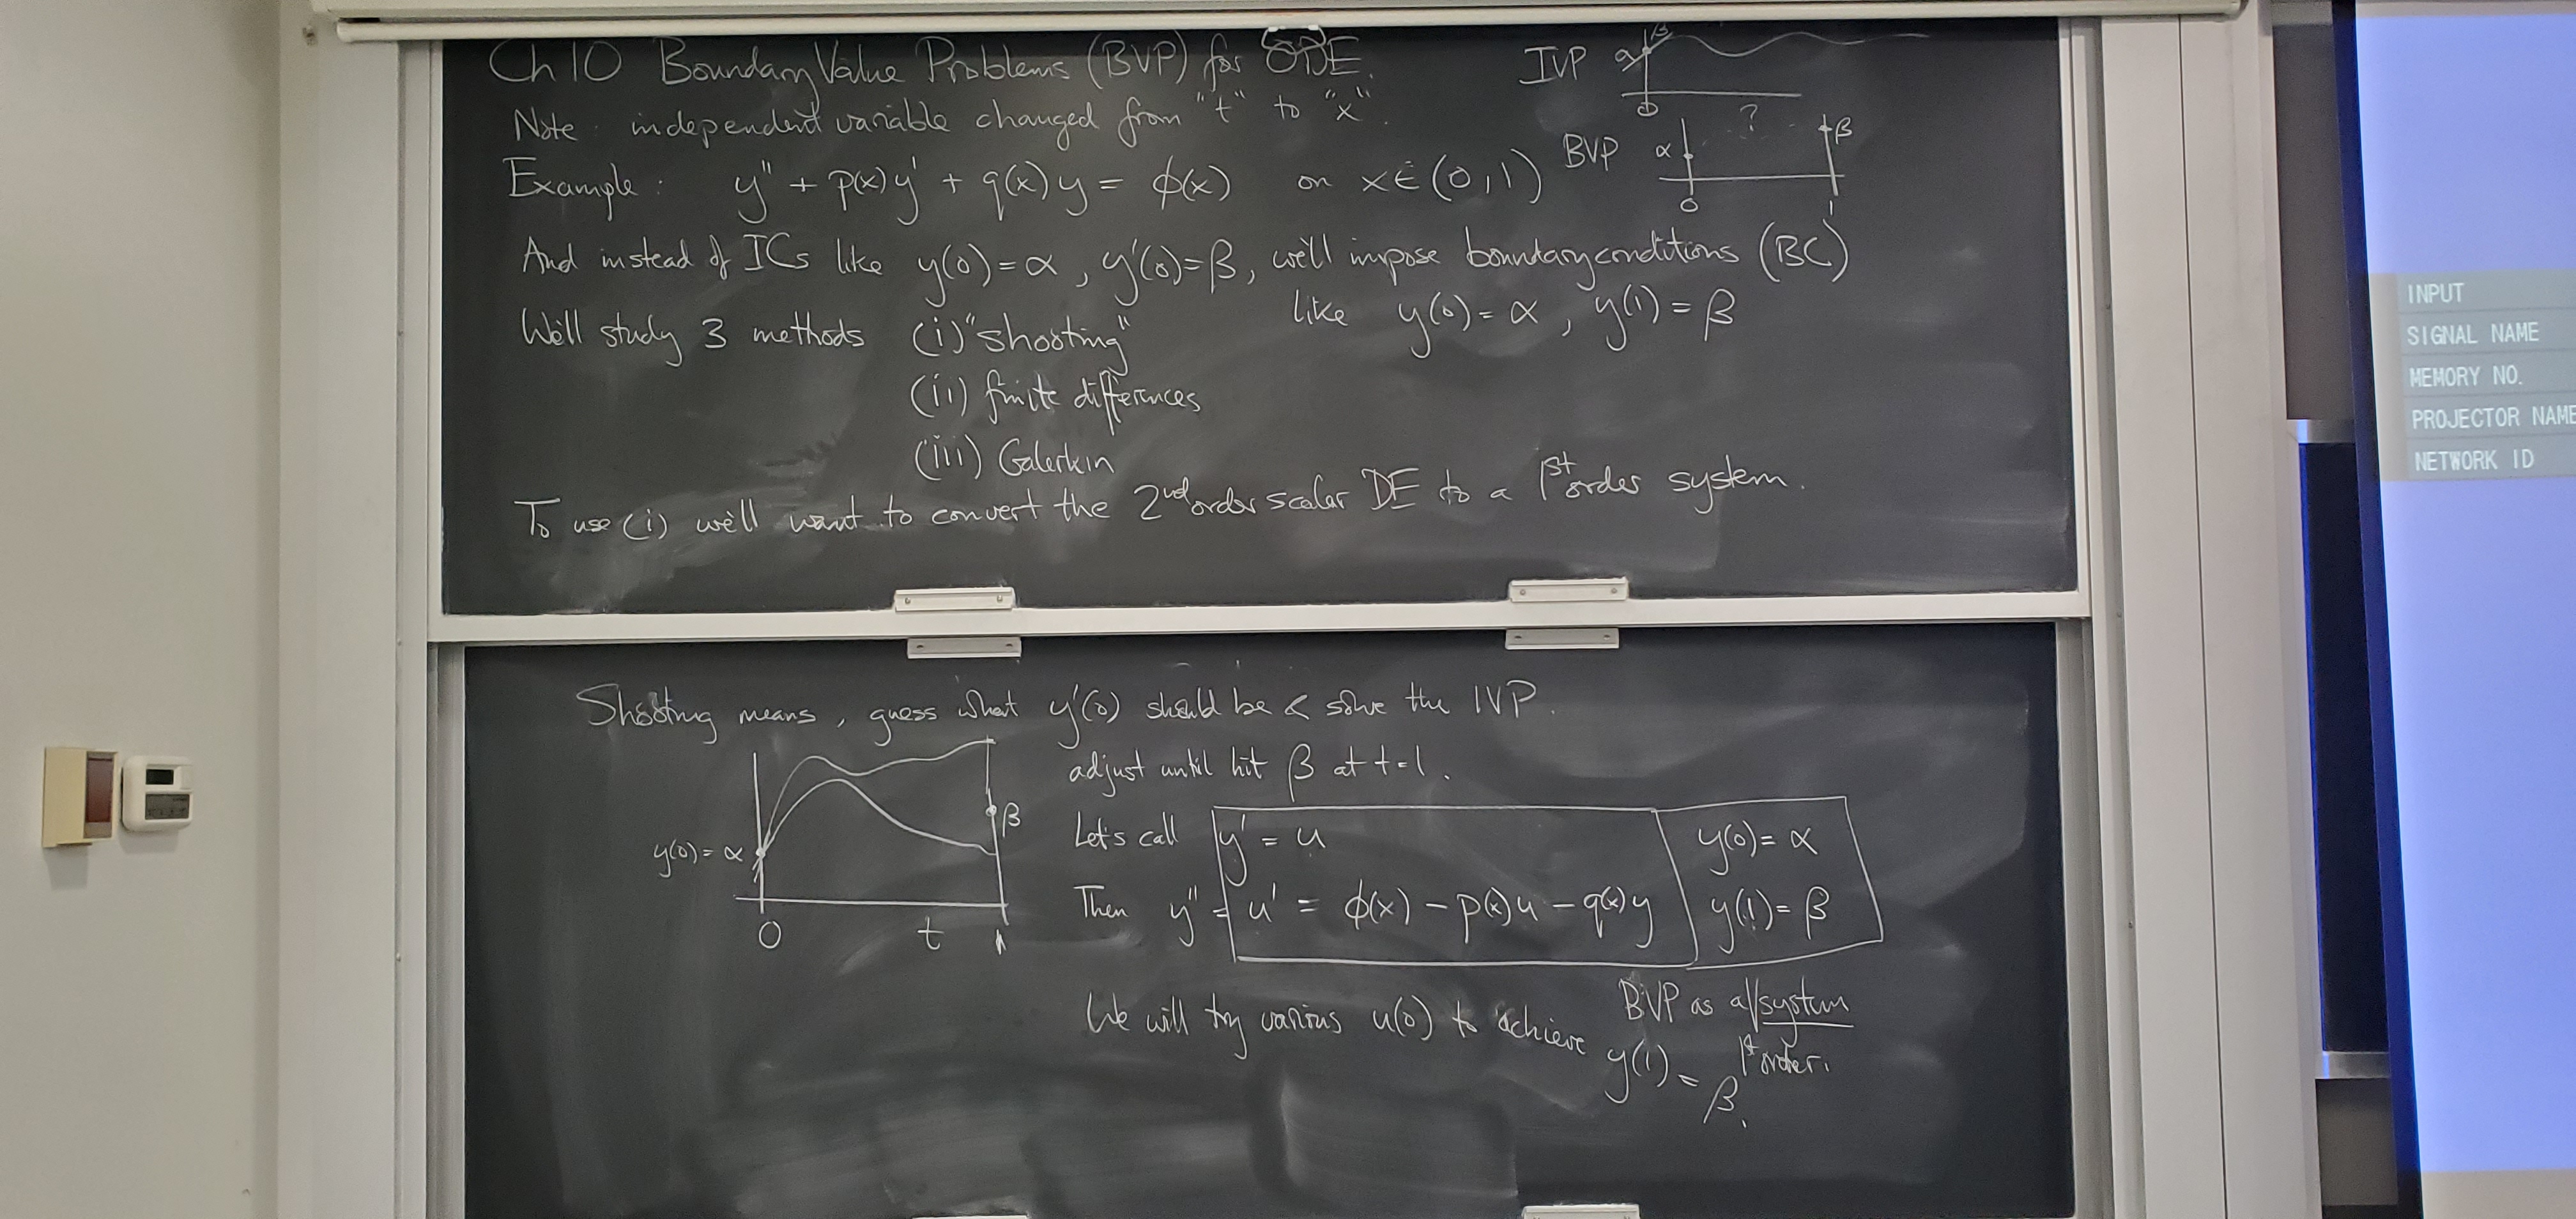 Ch 10 Boundary Value Problems (BVP) for ODE.
IVP α β
0
Note: independent variable changed from "t" to "x".
?
BVP α β
0 1
Example: y'' + p(x)y' + q(x)y = ϕ(x) on x∈(0,1)
And instead of ICs like y(0)=α, y'(0)=β, we'll impose boundary conditions (BC)
like y(0)=α, y(1)=β
We'll study 3 methods (i) "shooting"
(ii) finite differences
(iii) Galerkin
To use (i) we'll want to convert the 2nd order scalar DE to a 1st order system.
Shooting means, guess what y'(0) should be & solve the IVP.
adjust until hit β at t=1.
y(0)=α
β
0 t 1
Let's call y' = u
Then y'' = u' = ϕ(x) - p(x)u - q(x)y
y(0)=α
y(1)=β
BVP as a/system
1st order.
We will try various u(0) to achieve y(1) = β.
INPUT
SIGNAL NAME
MEMORY NO.
PROJECTOR NAME
NETWORK ID